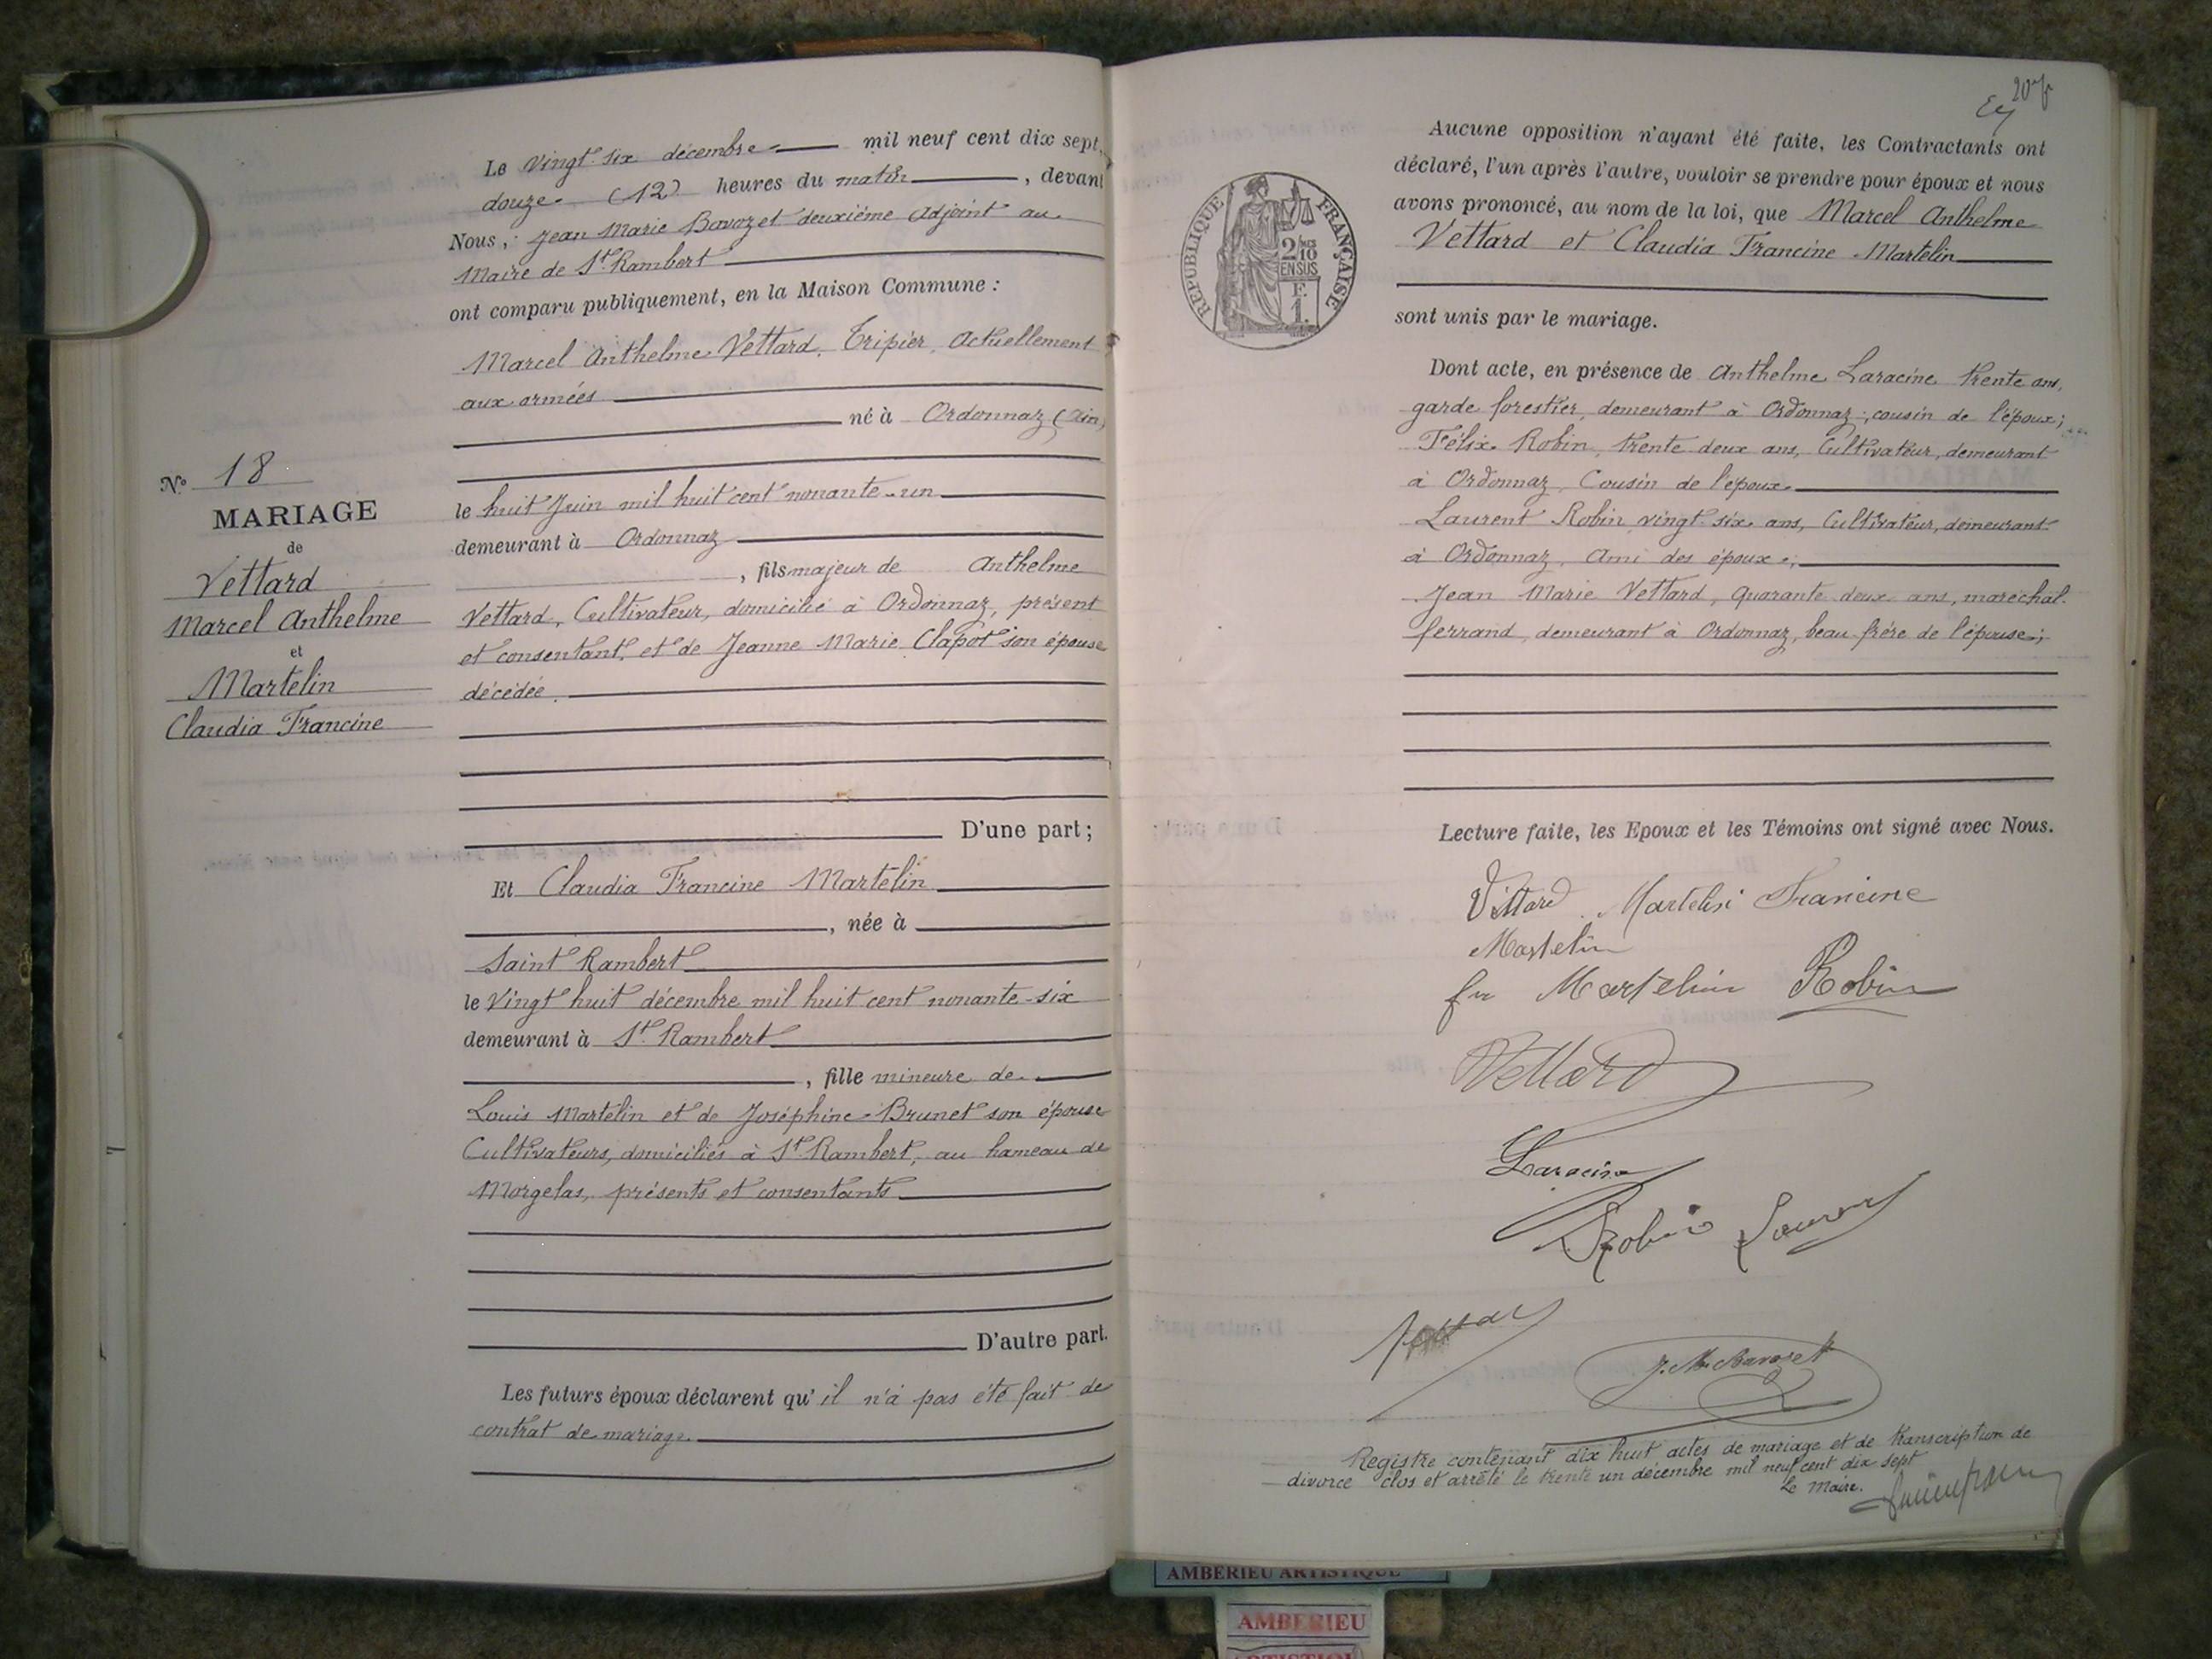 Le vingt-six décembre mil neuf cent dix sept,
douze (12) heures du matin, devant
Nous, Jean Marie Bavozet deuxième adjoint au
Maire de St Rambert
ont comparu publiquement, en la Maison Commune :
Marcel Anthelme Vettard, Tripier, Actuellement
aux armées
né à Ordonnaz (Ain)
le huit Juin mil huit cent nonante-un
demeurant à Ordonnaz
, fils majeur de Anthelme
Vettard, Cultivateur, domicilié à Ordonnaz, présent
et consentant, et de Jeanne Marie Clapot son épouse
décédée.
D'une part ;
Et Claudia Francine Martelin
, née à
Saint Rambert
le Vingt huit décembre mil huit cent nonante-six
demeurant à St Rambert
, fille mineure de
Louis Martelin et de Joséphine Brunet son épouse
Cultivateurs, domiciliés à St Rambert, au hameau de
Morgelas, présents et consentants
D'autre part.
Les futurs époux déclarent qu'il n'a pas été fait de
contrat de mariage.
No 18
MARIAGE
de
Vettard
Marcel Anthelme
et
Martelin
Claudia Francine
20
Aucune opposition n'ayant été faite, les Contractants ont
déclaré, l'un après l'autre, vouloir se prendre pour époux et nous
avons prononcé, au nom de la loi, que Marcel Anthelme
Vettard et Claudia Francine Martelin
sont unis par le mariage.
RÉPUBLIQUE FRANÇAISE
2/10
EN SUS
F.
1.
Dont acte, en présence de Anthelme Laracine trente ans,
garde forestier, demeurant à Ordonnaz, cousin de l'époux ;
Félix Robin, trente deux ans, Cultivateur, demeurant
à Ordonnaz, Cousin de l'époux
Laurent Robin vingt six ans, Cultivateur, demeurant
à Ordonnaz, Ami des époux ;
Jean Marie Vettard, Quarante deux ans, maréchal-
ferrand, demeurant à Ordonnaz, beau-frére de l'épouse ;
Lecture faite, les Epoux et les Témoins ont signé avec Nous.
Vettard Martelin Francine
Martelin
fe Martelin Robin
Vettard
Laracine
Robin Laurent
J. M. Bavozet
Registre contenant dix huit actes de mariage et de transcription de
divorce clos et arrêté le trente un décembre mil neuf cent dix sept
Le Maire.
AMBERIEU ARTISTIQUE
AMBERIEU
ARTISTIQUE